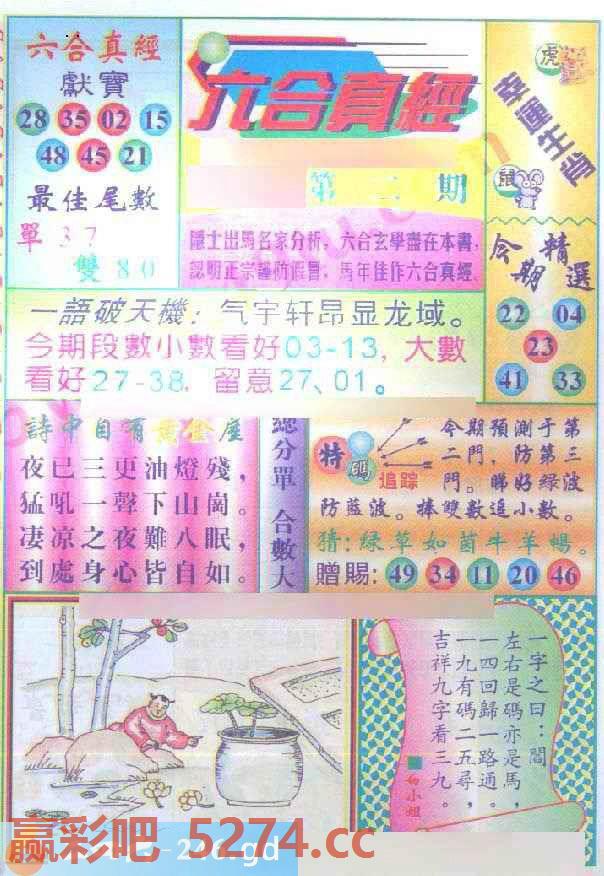 六合真經
獻寶
28 35 02 15
48 45 21
最佳尾數
單 37
雙 80
六合真經
第二期
隱士出馬名家分析，六合玄學盡在本書，
認明正宗謹防假冒，馬年佳作六合真經
虎
幸運生肖
鼠
今期精選
22 04
23
41 33
一語破天機：气宇轩昂显龙域。
今期段數小數看好03-13，大數
看好27-38，留意27、01。
詩中自有黃金屋
夜已三更油燈殘，
猛吼一聲下山崗。
淒凉之夜難入眠，
到處身心皆自如。
總分單 合數大
特碼
追踪
今期預測于第
二門，防第三
門。睇好綠波
防藍波。捧雙數追小數。
猜：綠草如茵牛羊暢。
贈賜：49 34 11 20 46
一字之曰：閣
左右是碼亦是馬，
一四回歸一路通。
一九有碼二五尋，
吉祥九字看三九。
小姐
赢彩吧 5274.cc
246.gd